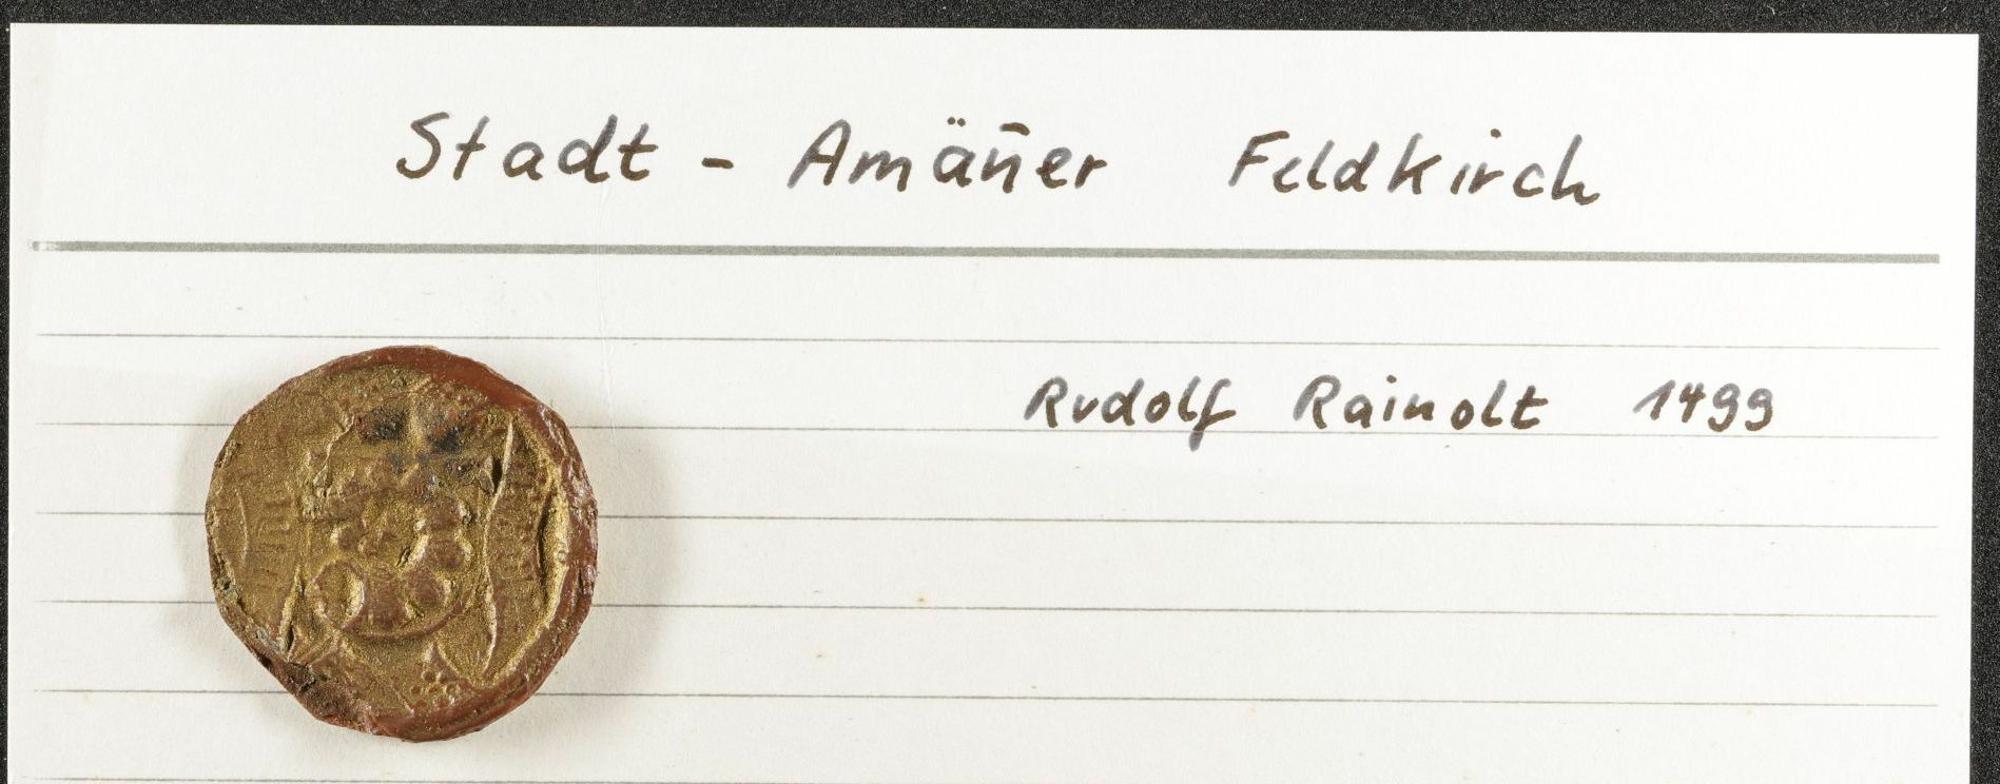 Stadt - Amän̄er Feldkirch
Rudolf Rainolt 1499